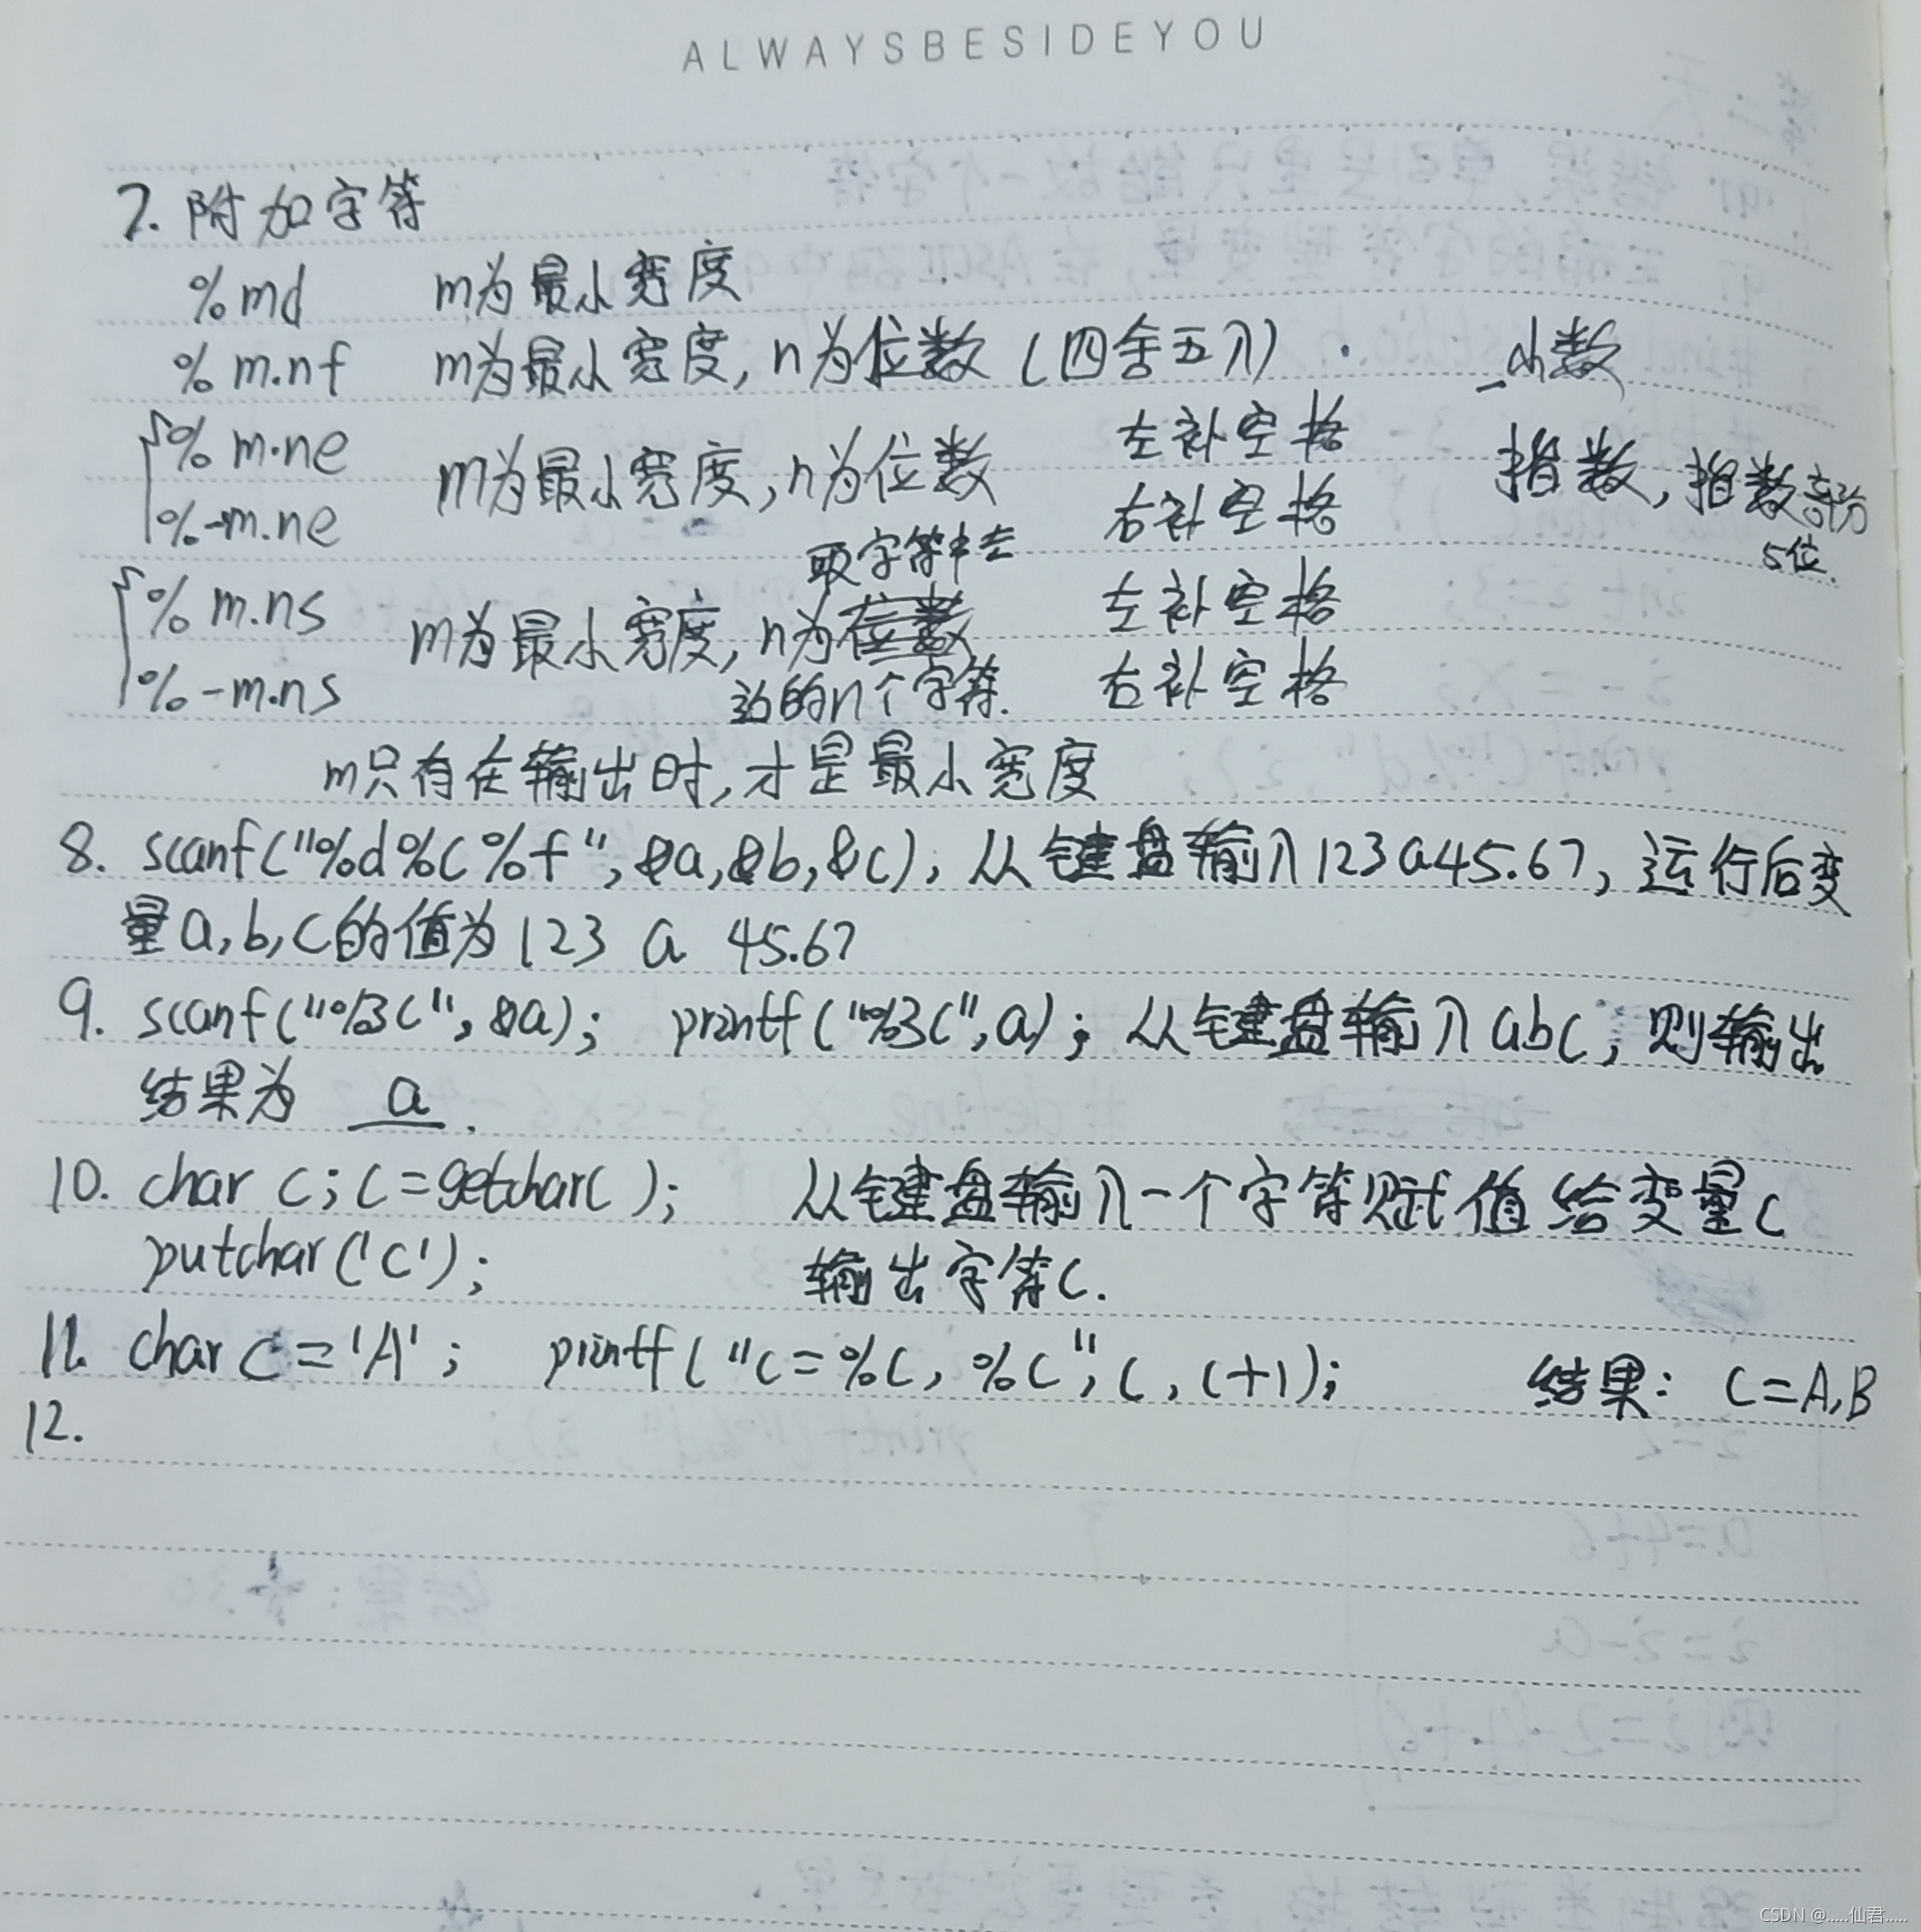 ALWAYSBESIDEYOU
7. 附加字符
%md m为最小宽度
%m.nf m为最小宽度,n为位数(四舍五入). 小数
%m.ne 左补空格
m为最小宽度,n为位数 指数,指数部分5位.
%-m.ne 右补空格
取字符串左
%m.ns 左补空格
m为最小宽度,n为位数
%-m.ns 边的n个字符. 右补空格
m只有在输出时,才是最小宽度
8. scanf("%d%c%f",&a,&b,&c),从键盘输入123a45.67,运行后变
量a,b,c的值为123 a 45.67
9. scanf("%3c",&a); printf("%3c",a);从键盘输入abc,则输出
结果为 a .
10. char c;c=getchar( ); 从键盘输入一个字符赋值给变量c
putchar('c'); 输出字符c.
11. char c='A'; printf("c=%c,%c",c,c+1); 结果: c=A,B
12.
CSDN @.....仙君.....